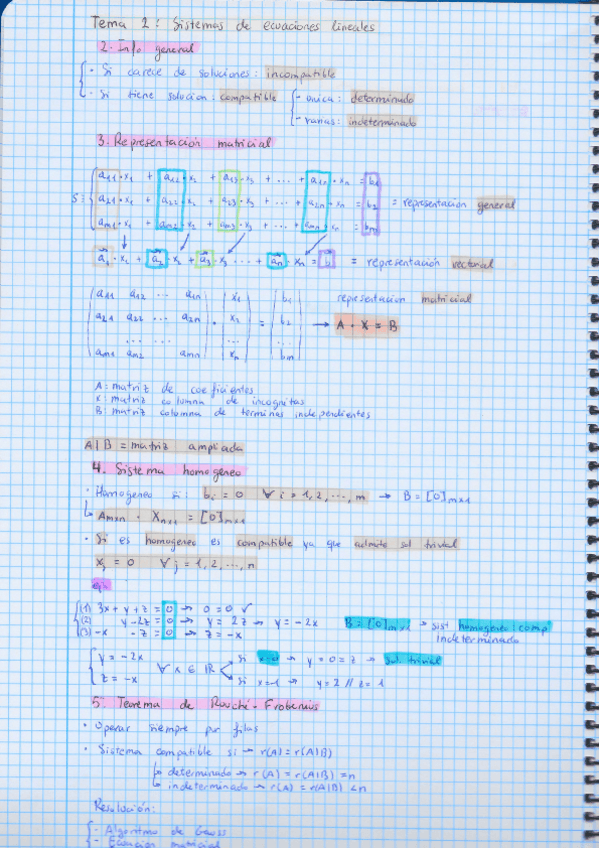 Tema 2: Sistemas de ecuaciones lineales
2. Info general
· Si carece de soluciones: incompatible
· Si tiene solucion: compatible
- unica: determinado
- varias: indeterminado
3. Representación matricial
S ≡ { a11·x1 + a12·x2 + a13·x3 + ... + a1n·xn = b1
a21·x1 + a22·x2 + a23·x3 + ... + a2n·xn = b2 = representacion general
am1·x1 + am2·x2 + am3·x3 + ... + amn·xn = bm
a1·x1 + a2·x2 + a3·x3 ... + an·xn = b = representación vectorial
a11 a12 ... a1n x1 b1 representacion matricial
a21 a22 ... a2n · x2 = b2 → A · X = B
... ...
am1 am2 amn xn bm
A: matriz de coeficientes
X: matriz columna de incognitas
B: matriz columna de terminos independientes
A|B = matriz ampliada
4. Sistema homogeneo
· Homogeneo si: bi = 0 ∀ i = 1, 2, ..., m → B = [0]m×1
↳ Am×n · Xn×1 = [0]m×1
· Si es homogeneo es compatible ya que admite sol trivial
xj = 0 ∀ j = 1, 2, ..., n
ejm
(1) 3x + y + z = 0 → 0 = 0 ✓
(2) y - 2z = 0 → y = 2z → y = -2x B = [0]m×1 → sist homogeneo: comp
(3) -x - z = 0 → z = -x indeterminado
{ y = -2x ∀ x ∈ ℝ si x=0 → y = 0 = z → sol. trivial
z = -x si x=-1 → y = 2 // z = 1
5. Teorema de Rouché-Frobenius
· Operar siempre por filas
· Sistema compatible si → r(A) = r(A|B)
↳ determinado → r(A) = r(A|B) = n
↳ indeterminado → r(A) = r(A|B) < n
Resolución:
- Algoritmo de Gauss
- Ecuacion matricial